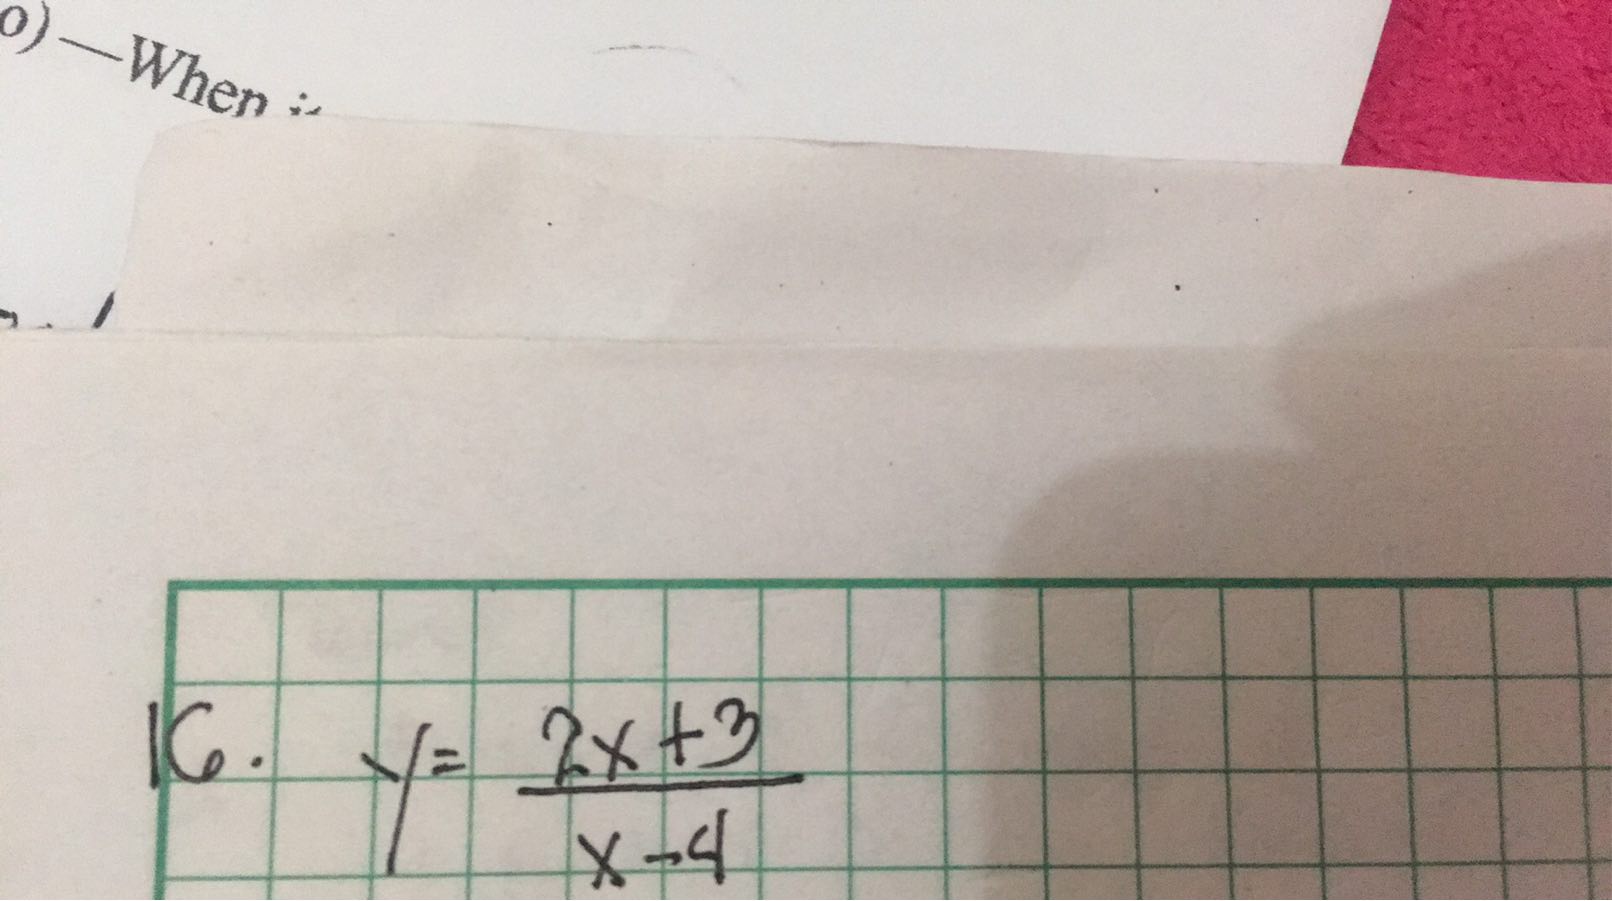 o)—When
16. y = 2x+3
x-4